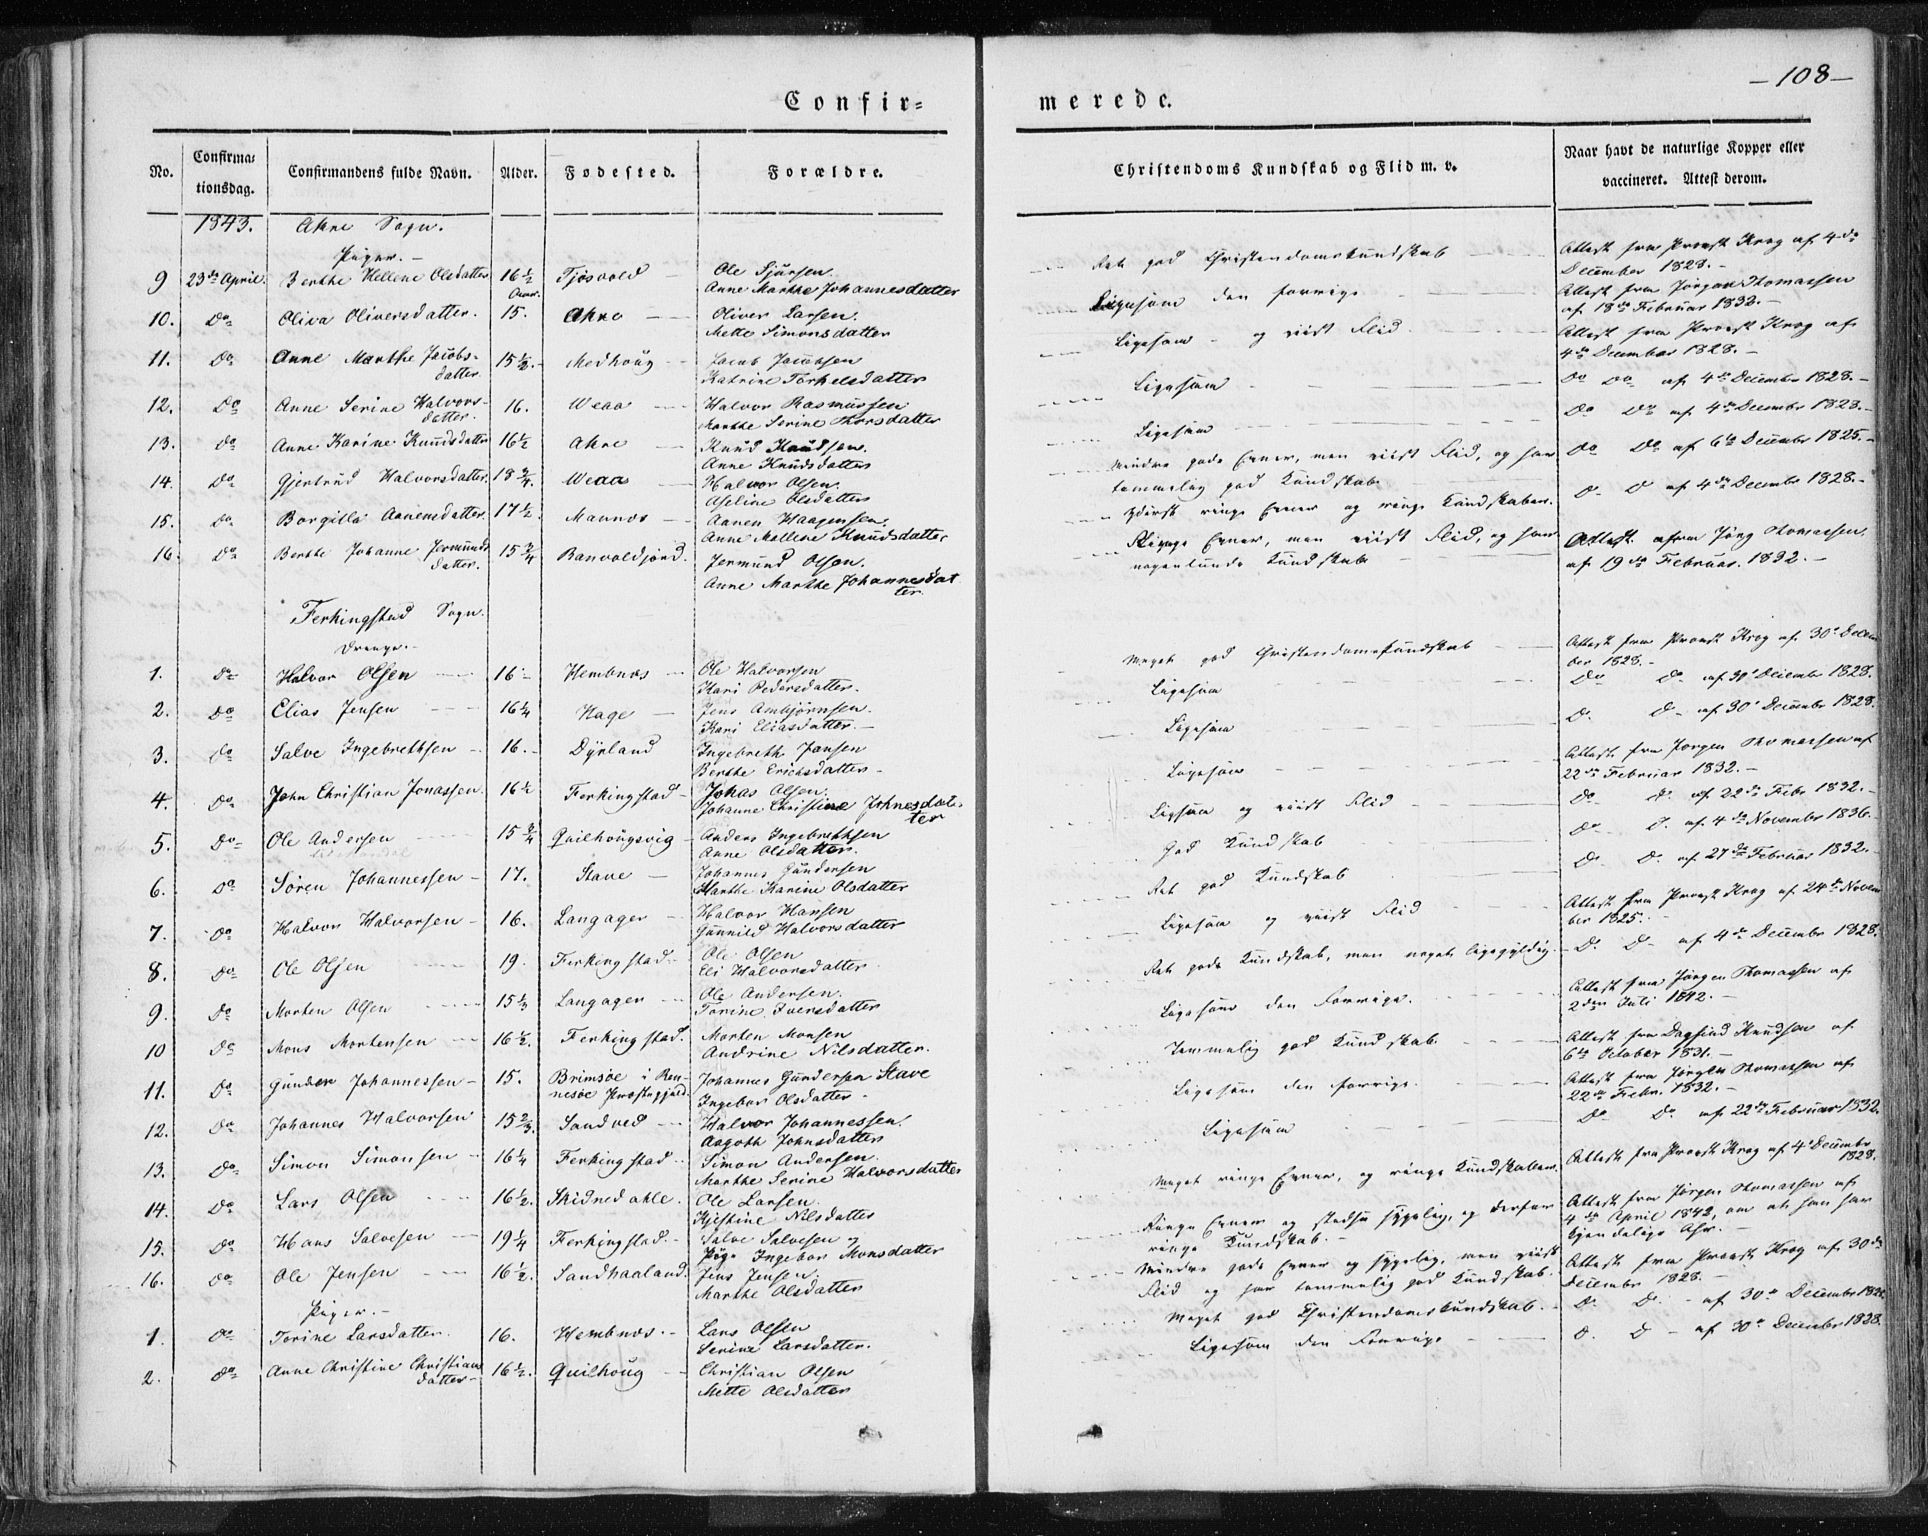 — 108 —
Confir=
merede.
No.
Confirma=
tionsdag.
Confirmandens fulde Navn.
Alder.
Fødested.
Forældre.
Christendoms Kundskab og Flid m. v.
Naar havt de naturlige Kopper eller
vaccineret. Attest derom.
1843. Akre Sogn.
Piger. —
9 23de April Berthe Hellene Olsdatter 16 1/2 Tjøsvold — Ole Sjursen
Aar. Anne Marthe Johannesdatter
Ret god Christendomskundskab Attest fra Provst Krog af 4de
December 1828. —
10. Do Oliva Oliversdatter. 15. Akre — Oliver Larsen.
Mette Simonsdatter
Ligesom den forrige Attest fra Jørgen Thomassen
af 18de Februar 1832. —
11. Do Anne Marthe Jacobs- 15 1/2. — Medhoug — Jacob Jacobsen
datter. Katrine Torkelsdatter
Ligesom — og viist Flid. Attest fra Provst Krog af
4de December 1828. —
12. Do Anne Serine Halvors- 16. Weaa — Halvor Rasmussen
datter. Marthe Serine Thorsdatter
Ligesom Do Do af 4de December 1828. —
13. Do Anne Karine Knudsdatter 16 1/2 Akre — Knud Knudsen.
Anne Knudsdatter
Ligesom Do Do af 4de Decembr 1828. —
14. Do Gjertrud Halvorsdatter. 18 3/4. Weaa — Halvor Olsen.
Aseline Olsdatter
Mindre gode Evner, men viist Flid, og har Do Do af 6te Decembr 1825. —
temmelig god Kundskab
15. Do Borgilla Aanensdatter. 17 1/2. Mannos — Aanen Haagensen.
Anne Mallene Knudsdatter
Yderst ringe Evner og ringe Kundskaber. D. D af 4de Decembr 1828. —
16. Do Berthe Johanne Jermunds 15 3/4 Ranvoldfjord. Jermund Olsen.
datter. Anne Marthe Johannesdat
ter.
Ringe Evner, men viist Flid, og har Attest fra Jørg Thomassen.
nogenlunde Kundskab af 19de Februar. 1832. —
Ferkingstad Sogn.
Drenge. —
1. Do Halvor Olsen — 16 — Hembnes — Ole Halvorsen
Kari Pedersdatter.
Meget god Christendomskundskab Attest fra Provst Krog af 30te Decem
ber 1828. —
2. Do Elias Jensen 16 1/4 Hage — Jens Ambjørnsen.
Kari Eliasdatter. —
Ligesom Do Do af 30te December 1828.
3. Do Salve Ingebrethsen — 16. — Dyrland Ingebreth Jansen
Berthe Erichsdatter —
Ligesom D. D — af 30te Decembr 1828.
4. Do John Christian Jonassen. 16 1/2 Ferkingstad — Johas Olsen.
Johanne Christine Johnesdat-
ter
Ligesom Attest fra Jørgen Thomassen af
22de Februar 1832. —
5. Do Ole Andersen 15 3/4 Quilhougsvig — Anders Ingebrethsen
Anne Olsdatter.
Ligesom og viist Flid Do D. af 22de Febr 1832. —
6. Do Søren Johannessen — 17. Stave — Johannes Gundersen
Marthe Karine Olsdatter
God Kundskab Do D. af 4de Novembr 1836. —
7. Do Halvor Halvorsen — 16. Langager — Halvor Hansen
Gunnild Halvorsdatter
Ret god Kundskab D. D. af 27de Februar 1832. —
8. Do Ole Olsen 19. Ferkingstad — Ole Olsen
Eli Halvorsdatter
Ligesom og viist Flid Attest fra Provst Krog af 24de Novem
ber 1825. —
9. Do Morten Olsen 15 1/3 Langager — Ole Andersen.
Torine Iversdatter
Ret gode Kundskab, men noget ligegyldig. — D. D — af 4de Decembr 1828.
10 Do Mons Mortensen 16 1/2. Ferkingstad. Morten Monsen
Andrine Nilsdatter.
Ligesom den Forrige. Attest fra Jørgen Thomassen af
2den Juli 1842. —
11. Do Gunder Johannessen — 15. Brimsøe i Ren- Johannes Gundersen Stave
nesøe Præstegjæld. Ingebor Olsdatter —
Temmelig god Kundskab Attest fra Dagfind Knudsen af
6te October 1831. —
12. Do Johannes Halvorsen 15 2/3. Sandved — Halvor Johannessen.
Aagoth Johnsdatter
Ligesom den forrige. Attest fra Jørgen Thomassen af
22de Febr. 1832. —
13. Do Simon Simonsen — 16 1/4 Ferkingstad — Simon Andersen.
Marthe Serine Halvorsdatter
Ligesom Do Do af 22de Februar 1832.
14. Do Lars Olsen 16 1/2. Skidnedahle. Ole Larsen
Kjestine Nilsdatter
Meget ringe Evner, og ringe Kundskaber. Attest fra Provst Krog af 4de Decembr
1828.
15. Do Hans Salvesen — 19 1/4 Ferkingstad. — Salve Salvesen og
Pige Ingebor Monsdatter
Ringe Evner og stedse sygelig, og derfor Attest fra Jørgen Thomassen af
ringe Kundskab. — 4de April 1842, om at han har
kjendelige Ahr. —
16. Do Ole Jensen 16 1/2. Sandhaaland. Jens Jensen
Marthe Olsdatter
Mindre gode Evner og sygelig, men viist Attest fra Provst Krog af 30de
Flid og har temmelig god Kundskab. December 1828. —
Piger. —
1. Do Torine Larsdatter. 16. Hembnes. — Lars Olsen
Serine Larsdatter.
Meget god Christendomskundskab. — D. D. — af 30te December
2. Do Anne Christine Christians 16 1/2. Quilhoug — Christian Olsen
datter — Mette Olsdatter
Ligesom den Forrige D. D — af 30te December 1828.